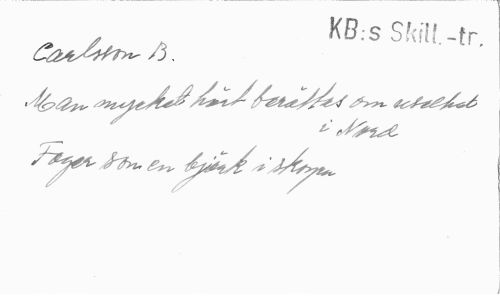 KB:s Skill.-tr.
Carlsson B.
Man mycket hört berättas om uselhet
i Nord
Fager som en björk i skogen